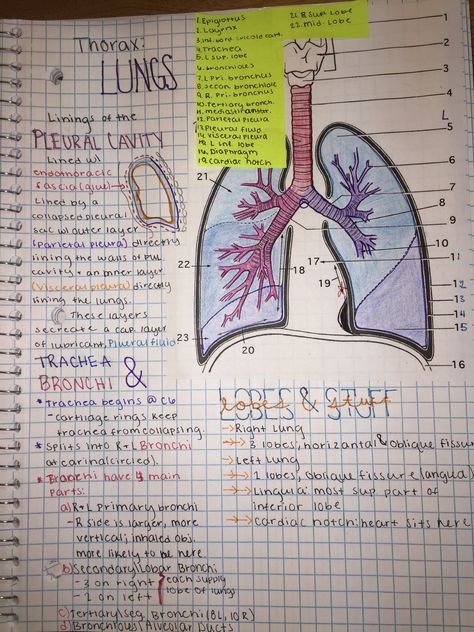 Thorax:
LUNGS
Linings of the
PLEURAL CAVITY
Lined w/
endothoracic
fascia (glue)
Lined by a
collapsed pleural
sac w/ outer layer
(Parietal pleura) directly
lining the walls of pul
cavity + an inner layer
(Visceral pleura) directly
lining the lungs.
These layers
secreate a cap. layer
of lubricant, Pleural fluid
TRACHEA &
BRONCHI
* Trachea begins @ C6
- cartilage rings keep
trachea from collapsing.
* Splits into R+L Bronchi
at carina (circled).
* Bronchi have 4 main
parts:
a) R+L primary bronchi
- R side is larger, more
vertical; inhaled obj.
more likely to be here
b) Secondary/Lobar Bronchi
- 3 on right
- 2 on left
each supply
lobe of lungs
c) Tertiary/seg. Bronchi (8L, 10R)
d) Bronchious/Alveolar Ducts
1. Epiglottus
2. Larynx
4. Trachea
5. L sup. lobe
6. bronchioles
7. L Pri. bronchus
8. secon. bronchiole
9. R. Pri. bronchus
10. Tertiary bronch.
12. Parietal Pleura
13. Pleural fluid
14. Visceral pleura
15. L Inf. lobe
16. Diaphragm
19. cardiac notch
21. R sup. Lobe
22. mid. lobe
1
2
3
4
L
5
6
7
8
9
10
11
12
13
14
15
16
17
18
19
20
21
22
23
LOBES & STUFF
Right lung
3 lobes, horizantal & oblique fissure
Left lung
2 lobes, oblique fissure (langua)
Lingula: most sup part of
inferior lobe
cardiac notch: heart sits here